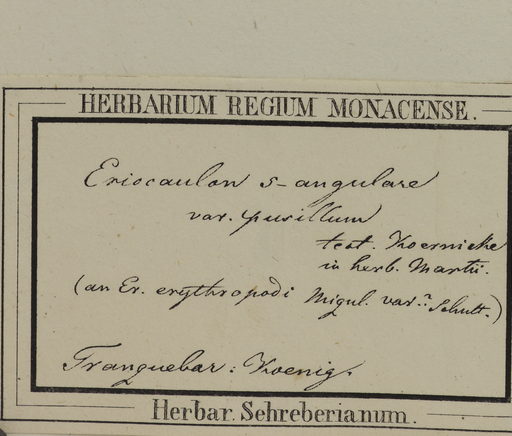 HERBARIUM REGIUM MONACENSE.
Eriocaulon 5-angulare
var. pusillum
test. Koernicke
in herb. Martii.
(an Er. erythropodi Miqul. var.? Schult.)
Tranquebar: Koenig.
Herbar. Schreberianum.